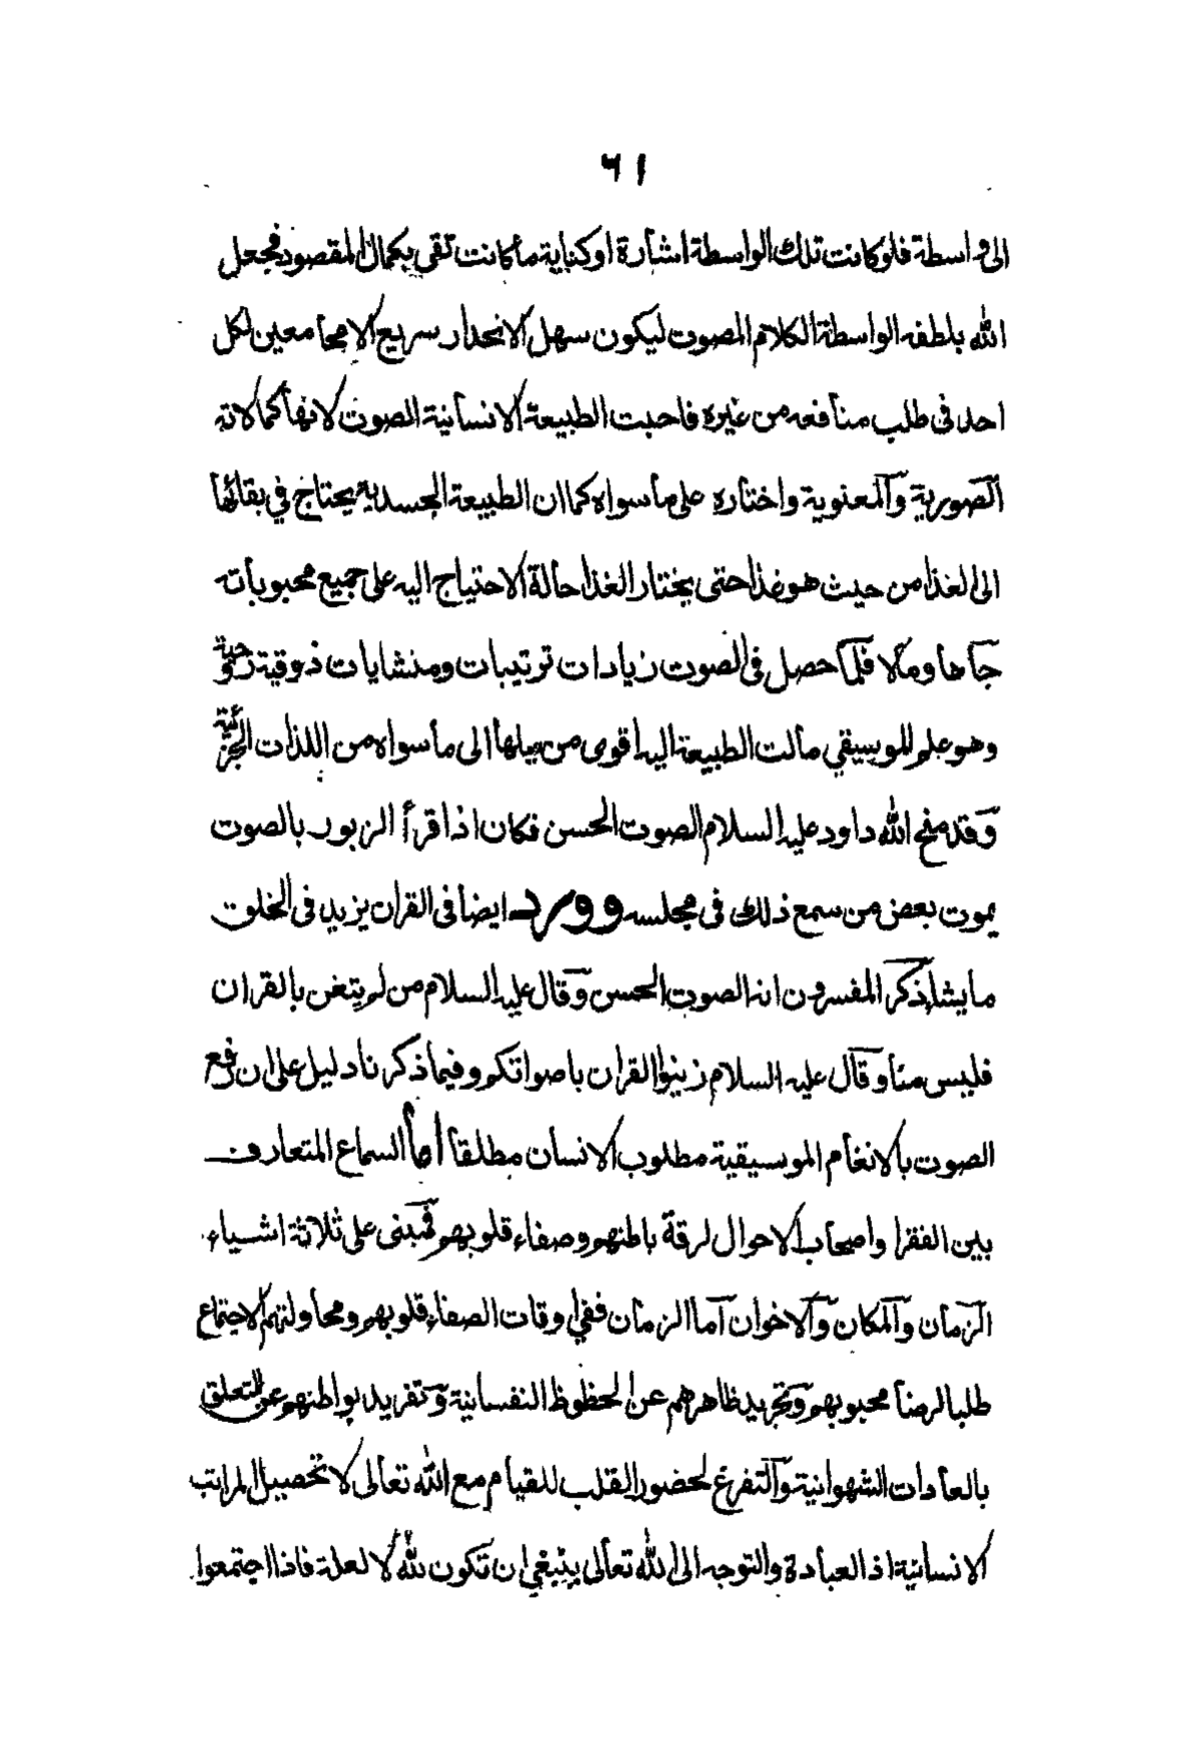 ٦١
الى واسطة فلو كانت تلك الواسطة اشارة او كناية ما كانت تفى بكمال المقصود فجعل
الله بلطفه الواسطة الكلام المصوت ليكون سهل الانحدار سريع الامحا معين لكل
احد فى طلب منافعه من غيره فاحبت الطبيعة الانسانية الصوت لانها كمالاته
الصورية والمعنوية واختاره على ما سواه كما ان الطبيعة الجسدية يحتاج في بقائها
الى الغذا من حيث هو غذا حتى يختار الغذا حالة الاحتياج اليه على جميع محبوباته
جاها ومالا فلما حصل فى الصوت زيادات ترتيبات ومنشايات ذوقية روحية
وهو علم الموسيقي مالت الطبيعة اليه اقوى من ميلها الى ما سواه من اللذات الجزئية
وقد منح الله داود عليه السلام الصوت الحسن فكان اذا قرأ الزبور بالصوت
يموت بعض من سمع ذلك فى مجلسه وورد ايضا فى القران يزيد فى الخلق
ما يشا ذكر المفسرون انه الصوت الحسن وقال عليه السلام من لم يتغن بالقران
فليس منا وقال عليه السلام زينوا القران باصواتكم وفيما ذكرنا دليل على ان رفع
الصوت بالانغام الموسيقية مطلوب الانسان مطلقا اما السماع المتعارف
بين الفقرا واصحاب الاحوال لرقة باطنهم وصفاء قلوبهم فمبنى على ثلاثة اشياء
الزمان والمكان والاخوان اما الزمان ففي اوقات الصفاء قلوبهم ومحاولتهم الاجتماع
طلبا لرضا محبوبهم وتجريد ظاهرهم عن الحظوظ النفسانية وتفريد بواطنهم عن التعلق
بالعادات الشهوانية والتفرغ لحضور القلب للقيام مع الله تعالى لا تحصيل المراتب
الانسانية اذ العبادة والتوجه الى الله تعالى ينبغي ان تكون لله لا لعلة فاذا اجتمعوا